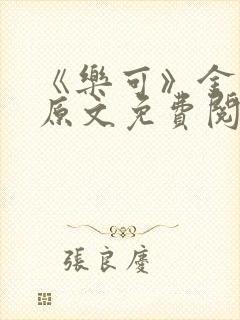 《樂可》金
原文免費閱
張良慶